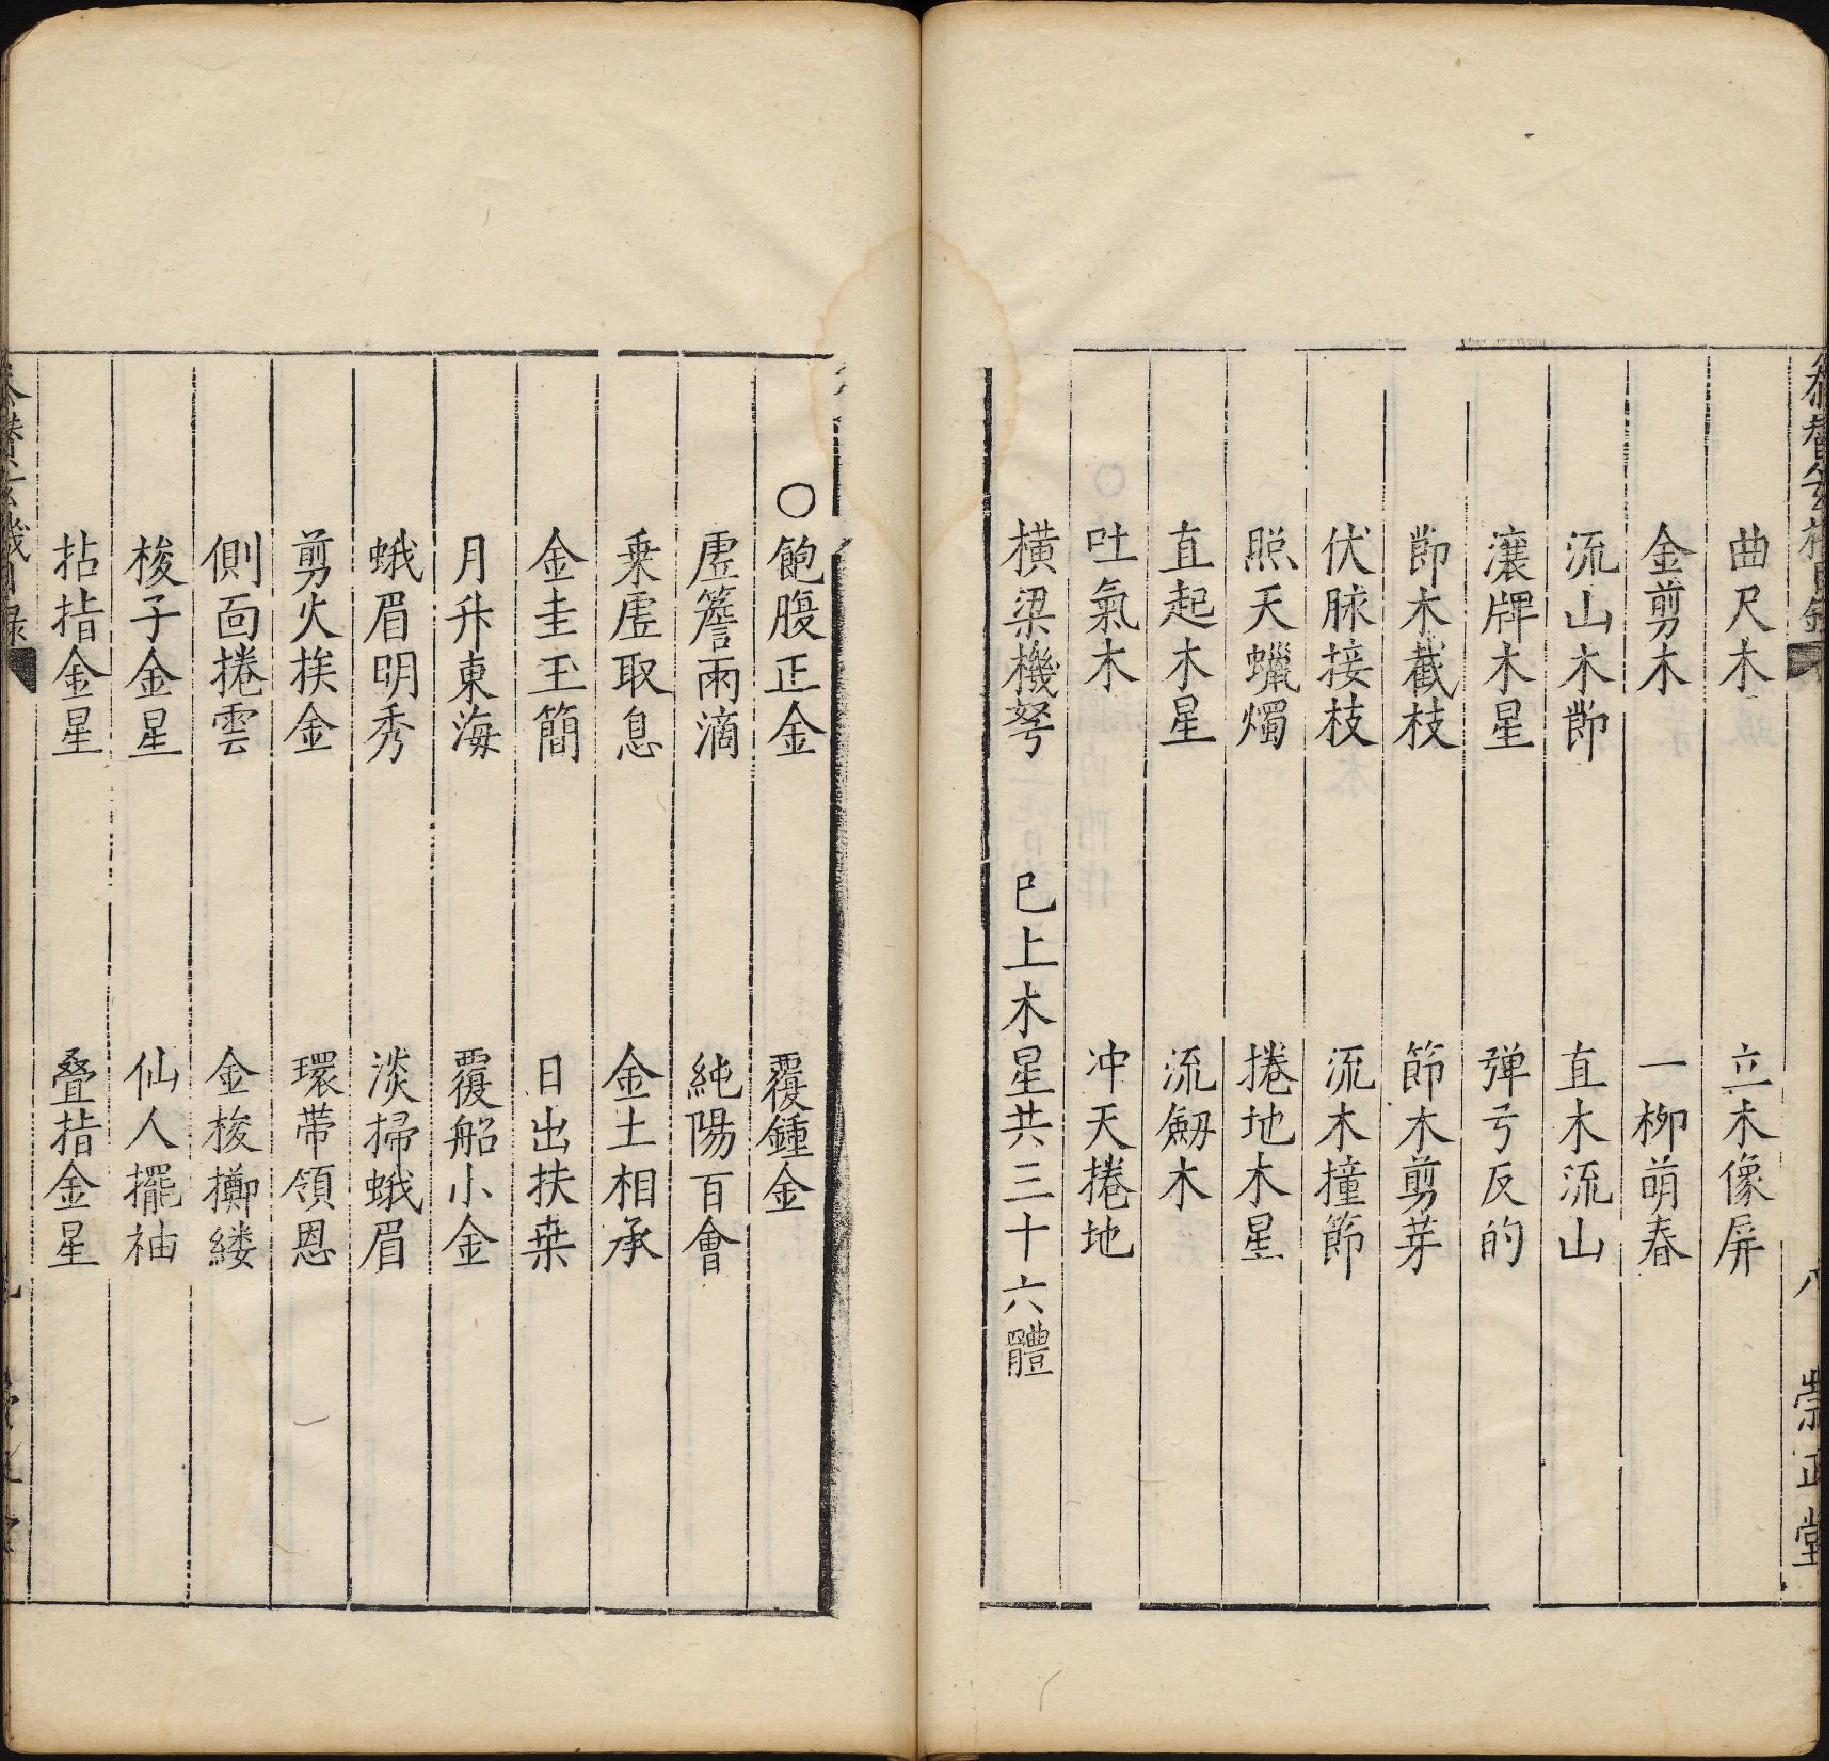 曲尺木　立木像屏
金剪木　一柳萌春
流山木節　直木流山
瀼牌木星　弾弓反的
節木截枝　節木剪芽
伏脉接枝　流木撞節
照天蠟燭　捲地木星
直起木星　流劒木
吐氣木　冲天捲地
横梁機弩　已上木星共三十六體
崇正堂
○飽腹正金　覆鍾金
虚簷雨滴　純陽百會
乗虚取息　金土相承
金圭玉簡　日出扶桒
月升東海　覆船小金
蛾眉明秀　淡掃蛾眉
剪火挨金　環帯領恩
側面捲雲　金梭擲縷
梭子金星　仙人擺袖
拈指金星　叠指金星